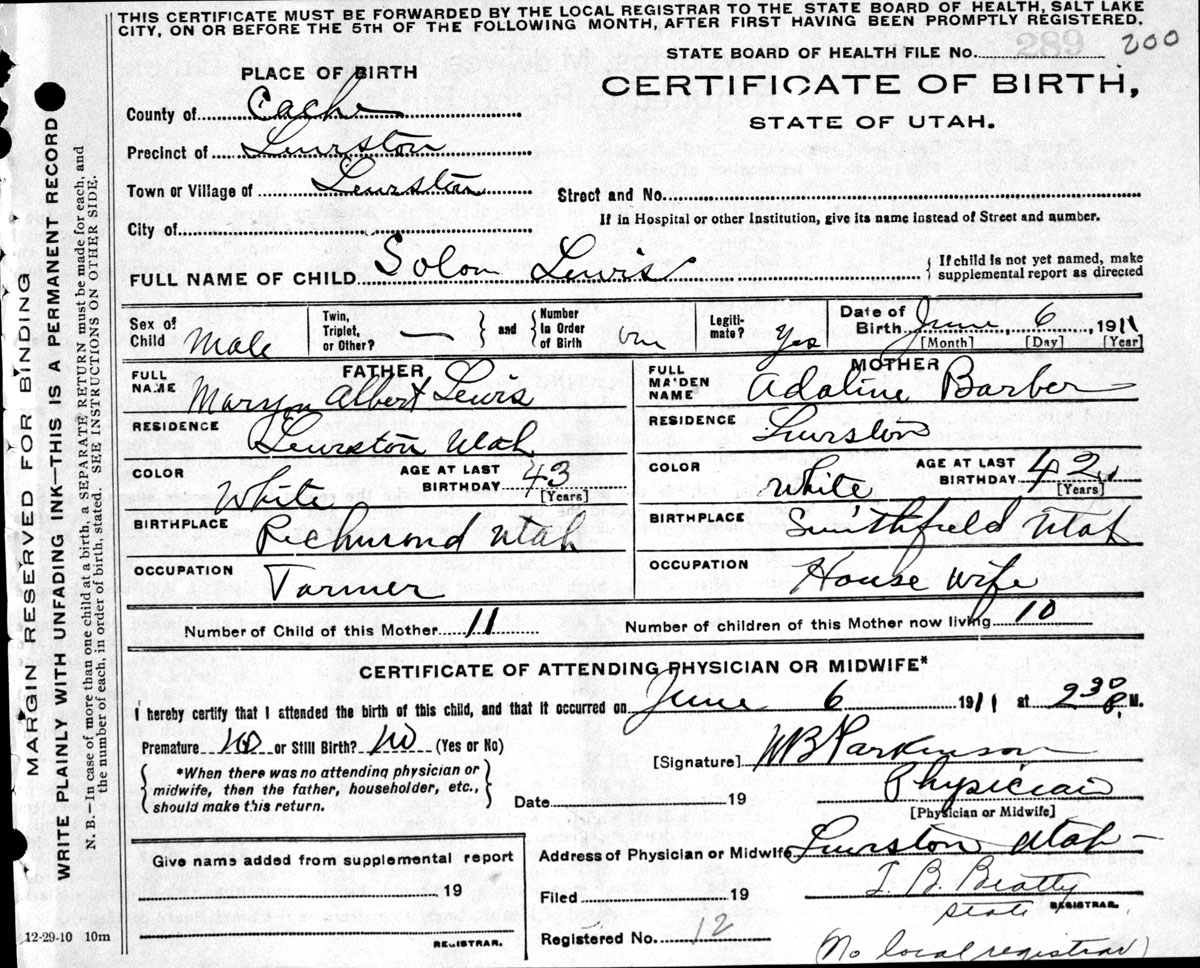 THIS CERTIFICATE MUST BE FORWARDED BY THE LOCAL REGISTRAR TO THE STATE BOARD OF HEALTH, SALT LAKE
CITY, ON OR BEFORE THE 5TH OF THE FOLLOWING MONTH, AFTER FIRST HAVING BEEN PROMPTLY REGISTERED.
STATE BOARD OF HEALTH FILE No. 200
PLACE OF BIRTH
CERTIFICATE OF BIRTH,
STATE OF UTAH.
County of Cache
Precinct of Lewiston
Town or Village of Lewiston
Street and No.
If in Hospital or other Institution, give its name instead of Street and number.
City of
FULL NAME OF CHILD Solon Lewis
{ If child is not yet named, make
supplemental report as directed
Sex of Child Male
Twin, Triplet, or Other? — } and { Number In Order of Birth
Legiti- mate? Yes
Date of Birth June 6, 1911
[Month] [Day] [Year]
FATHER
FULL NAME Albert Lewis
MOTHER
FULL MAIDEN NAME Adaline Barber
RESIDENCE Lewiston Utah
RESIDENCE Lewiston
COLOR White AGE AT LAST BIRTHDAY 43 [Years]
COLOR White AGE AT LAST BIRTHDAY 42 [Years]
BIRTHPLACE Richmond Utah
BIRTHPLACE Smithfield Utah
OCCUPATION Farmer
OCCUPATION House wife
Number of Child of this Mother 11
Number of children of this Mother now living 10
CERTIFICATE OF ATTENDING PHYSICIAN OR MIDWIFE*
I hereby certify that I attended the birth of this child, and that it occurred on June 6 1911 at 2 30 P. M.
Premature No or Still Birth? No (Yes or No)
[Signature] WB Parkinson
{ *When there was no attending physician or
midwife, then the father, householder, etc.,
should make this return. }
Date 19
Physician
[Physician or Midwife]
Give name added from supplemental report
19
REGISTRAR.
Address of Physician or Midwife Lewiston Utah
Filed 19
T. B. Beatty
State REGISTRAR.
Registered No. 12
(No local registrar)
12-29-10 10m
MARGIN RESERVED FOR BINDING
WRITE PLAINLY WITH UNFADING INK—THIS IS A PERMANENT RECORD
N. B.—In case of more than one child at a birth, a SEPARATE RETURN must be made for each, and
the number of each, in order of birth, stated. SEE INSTRUCTIONS ON OTHER SIDE.